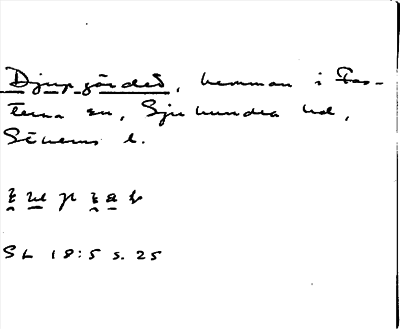 Djupgärdet, hemman i Fas-
terna sn, Sjuhundra hd,
Sthlms l.
SL 18:5 s. 25